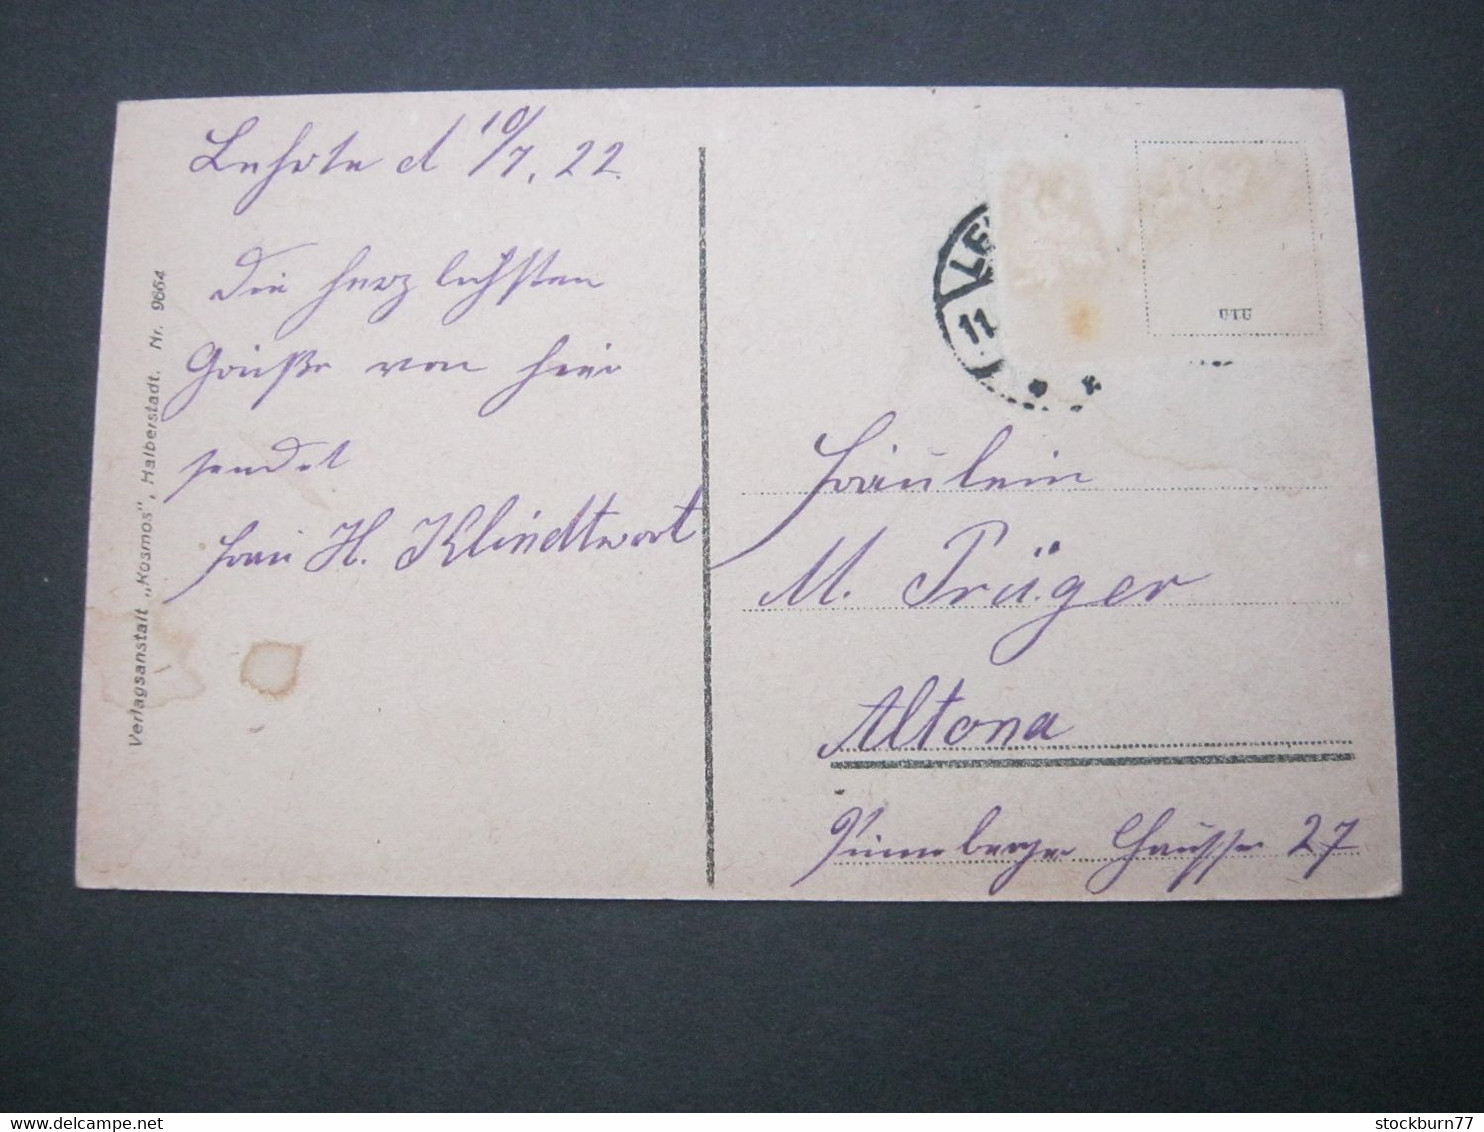 Lehrte d 10/7. 22.
Die herzlichsten
Grüße von hier
sendet
Frau H. Klindtwort
Verlagsanstalt „Kosmos", Halberstadt. Nr. 9664
LE
11.
Fräulein
M. Prüger
Altona
Pinneberger Chaussee 27
stockburn77